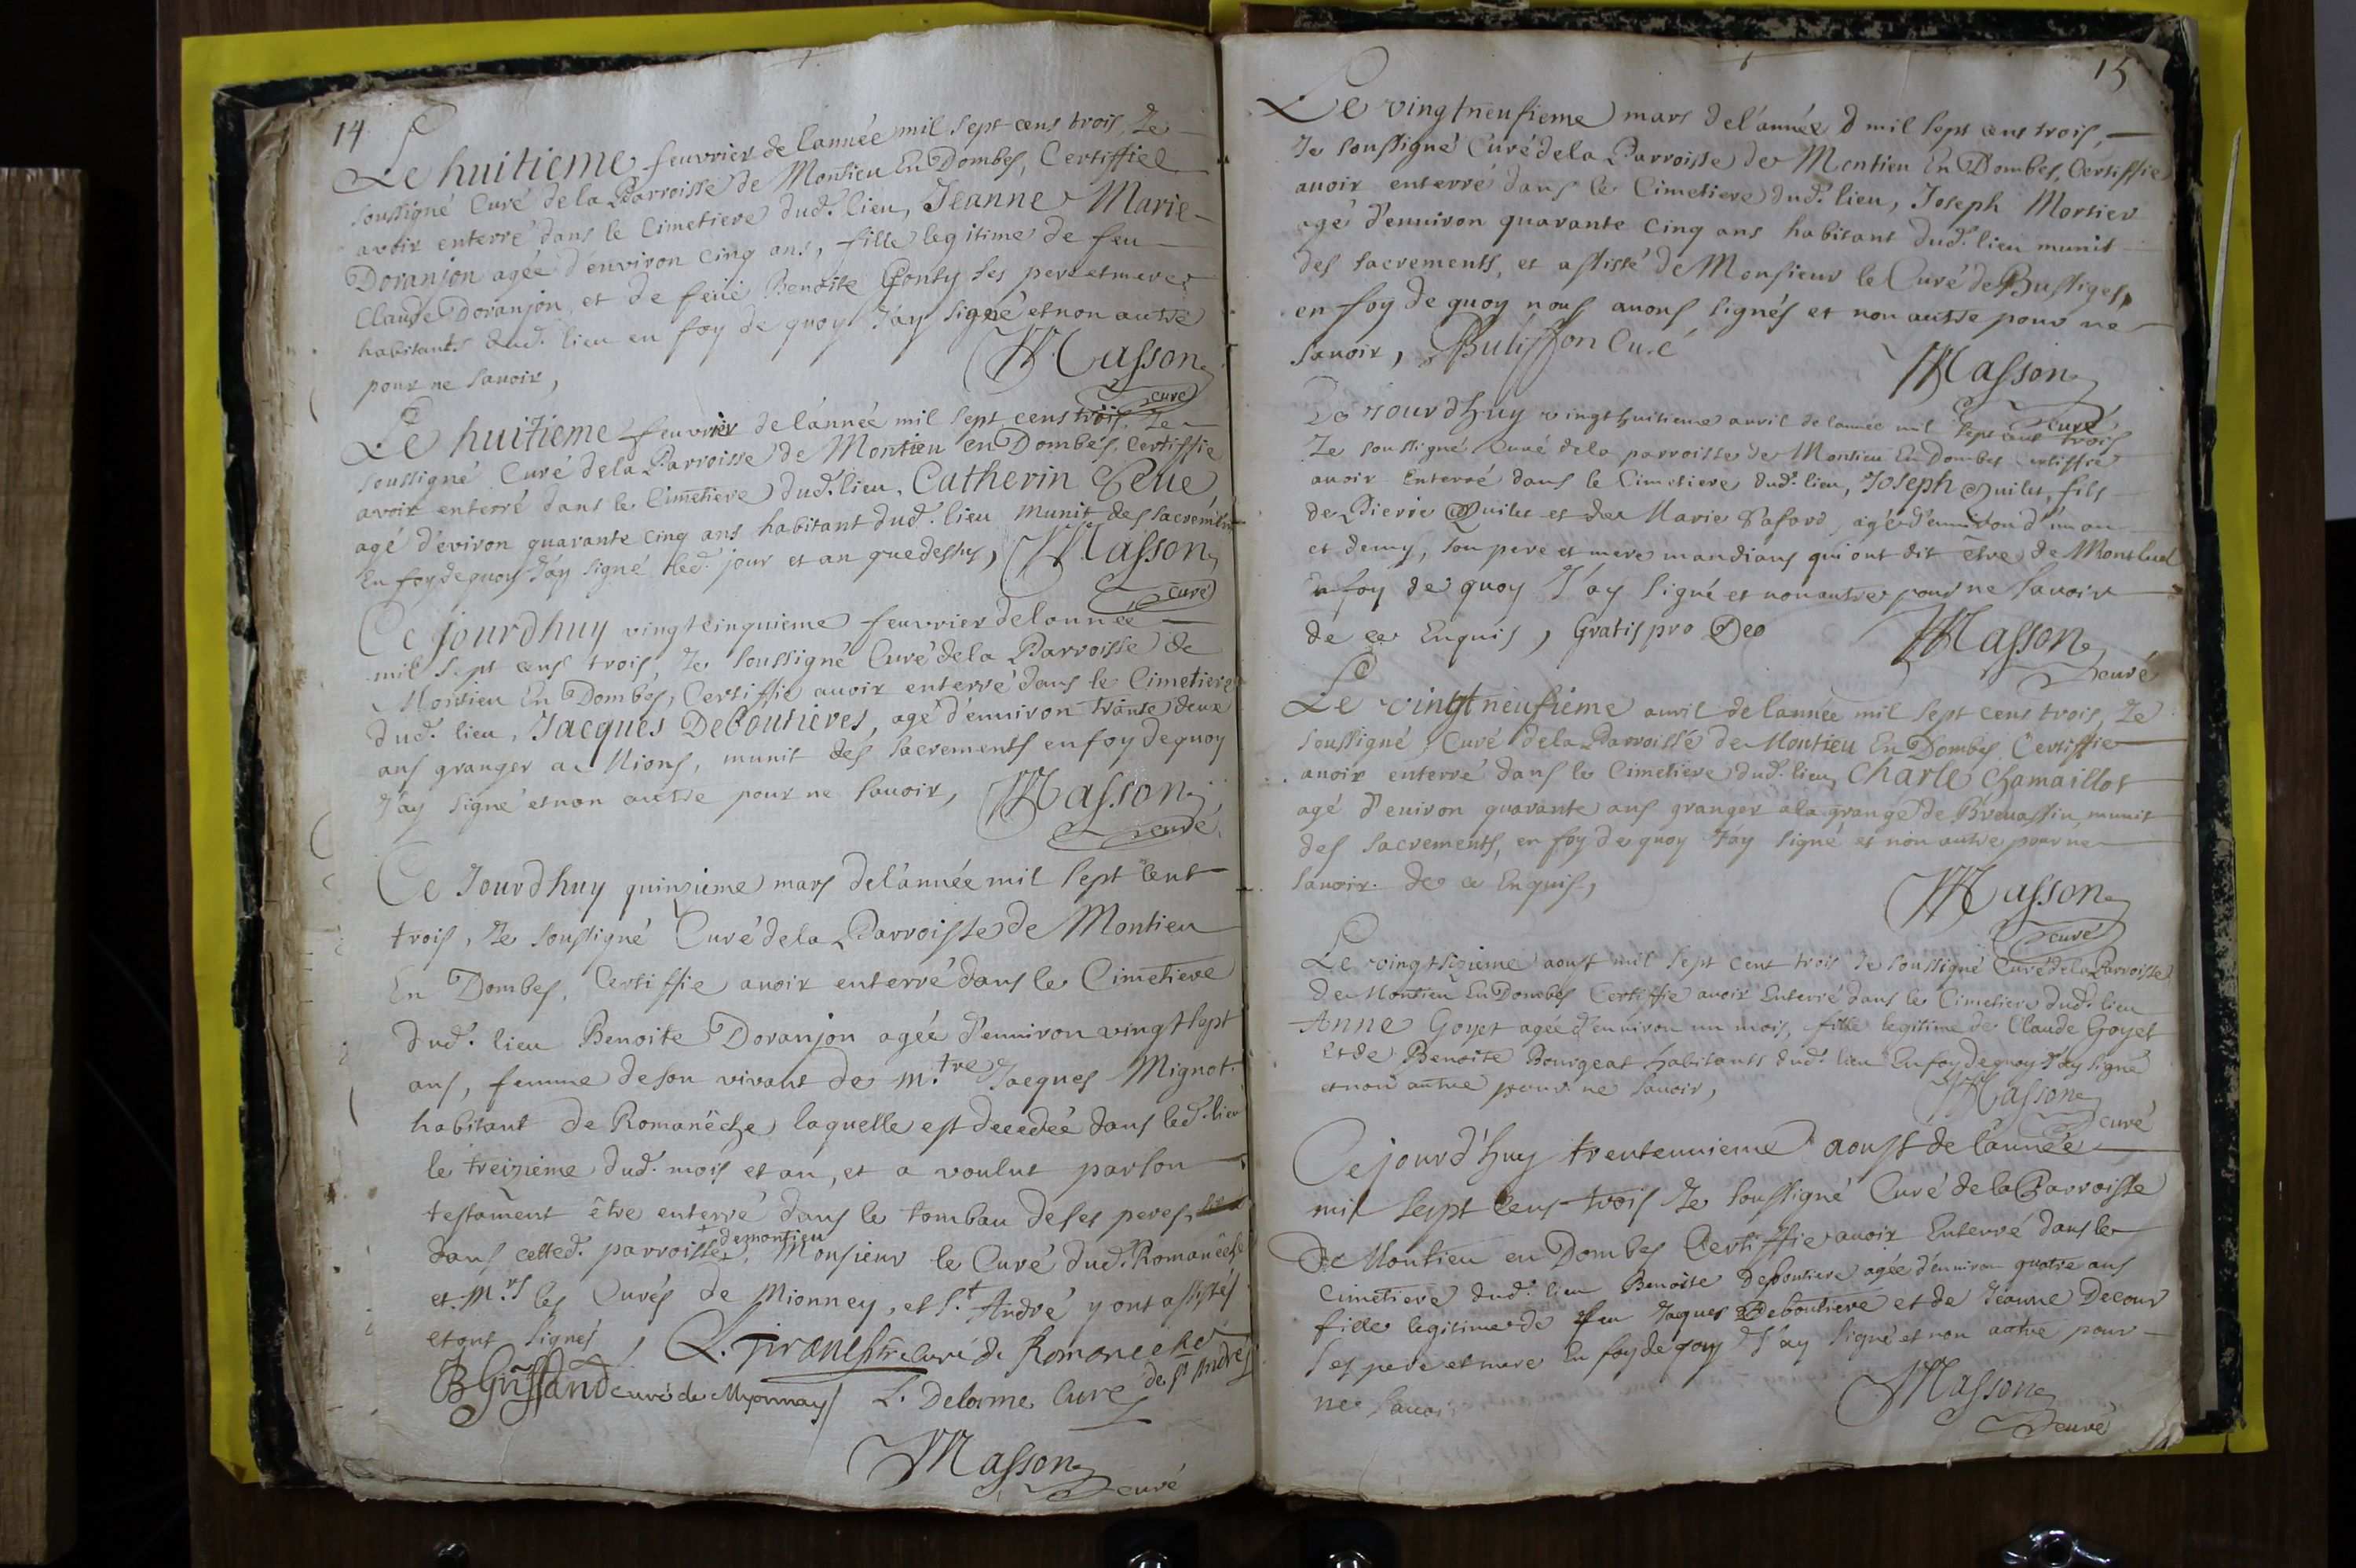 14
Le huitieme feuvrier de lannée mil sept cens trois, Je
soussigné Curé de la Parroisse de Montieu En Dombes, Certiffie
avoir enterré dans le Cimetiere dud. lieu, Jeanne Marie
Doranjon agée d'environ cinq ans, fille legitime de feu
Claude Doranjon et de feüe Benoite Ponty ses pere et mere
habitants dud. lieu en foy de quoy J'ay signé et non autre
pour ne savoir,
Masson
curé
Le huitieme feuvrier de lannée mil sept cens trois, Je
soussigné Curé de la Parroisse de Montieu en Dombes, Certiffie
avoir enterré dans le Cimetiere dud. lieu, Catherin
agé d'eviron quarante cinq ans habitant dud. lieu munit des sacrements
En foy de quoy J'ay signé led. jour et an que dessus, Masson
curé
Ce jourdhuy vingtcinquieme feuvrier de lannée
mil sept cens trois, Je soussigné Curé de la Parroisse de
Montieu En Dombes, Certiffie auoir enterré dans le Cimetiere
dud. lieu, Jacques Deboutieres, agé d'enuiron trante deux
ans granger a Mions, munit des sacrements en foy de quoy
J'ay signé et non autre pour ne sauoir, Masson
curé
Ce Jourdhuy quinzieme mars de l'année mil sept cent
trois, Je soussigné Curé de la Parroisse de Montieu
En Dombes, Certiffie auoir enterré dans le Cimetiere
dud. lieu Benoite Doranjon agée d'enuiron vingt sept
ans, femme de son vivant de m.tre Jacques Mignot
habitant de Romanêche laquelle est decedée dans led. lieu
le treizieme dud. mois et an, et a voulut par son
testament être enterré dans le tombau de ses peres
dans cetted. parroisse demontieu, Monsieur le Curé dud. Romanêche
et M.rs les Curés de Mionney, et S.t André y ont assistés
et ont signés,
curé de Romaneche
curé de Myonnay L. Delorme Curé de St André
Masson
curé
15
Le vingtneufieme mars de l'année d mil sept cens trois,
Je soussigné Curé de la Parroisse de Montieu En Dombes, Certiffie
auoir enterré dans le Cimetiere dud. lieu, Joseph Mortier
agé d'enuiron quarante cinq ans habitant dud. lieu munit
des sacrements, et assisté de Monsieur le Curé de Bussiges,
en foy de quoy nous auons signés et non autre pour ne
sauoir, Bulisson Curé
Masson
curé
Ce Jourdhuy vingthuitieme auril de lannée mil sept cens trois
Je soussigné Curé de la parroisse de Montieu En Dombes Certiffie
auoir Enterré dans le Cimetiere dud. lieu, Joseph Quilet, fils
de Pierre Quilet et de Marie agé d'enuiron d'un an
et demy, son pere et mere mandians qui ont dit être de Montluel
En foy de quoy J'ay signé et non autre pour ne sauoir
de ce Enquis, Gratis pro Deo
Masson
curé
Le vingtneufieme auril de lannée mil sept cens trois, Je
soussigné Curé de la Parroisse de Montieu En Dombes Certiffie
auoir enterré dans le Cimetiere dud. lieu, Charle Chamaillot
agé d'euiron quarante ans granger a la grange de Breuassin, munit
des sacrements, en foy de quoy J'ay signé et non autre pour ne
sauoir de ce Enquis,
Masson
curé
Le vingtsizieme aoust mil sept cent trois Je soussigné Curé de la Parroisse
de Montieu En Dombes Certiffie auoir Enterré dans le Cimetiere dud. lieu
Anne Goyet agée d'enuiron un mois, fille legitime de Claude Goyet
et de Benoite Bourgeat habitants dud. lieu En foy de quoy J'ay signé
et non autre pour ne sauoir,
Masson
curé
Ce jourd'huy trenteunieme aoust de lannée
mil sept cens trois Je soussigné Curé de la Parroisse
de Montieu en Dombes Certiffie auoir Enterré dans le
cimetiere dud. lieu Benoite Deboutiere agée d'enuiron quatre ans
fille legitime de feu Jaques Deboutiere et de Jeanne Decour
ses pere et mere En foy de quoy J'ay signé et non autre pour
ne sauoir
Masson
curé